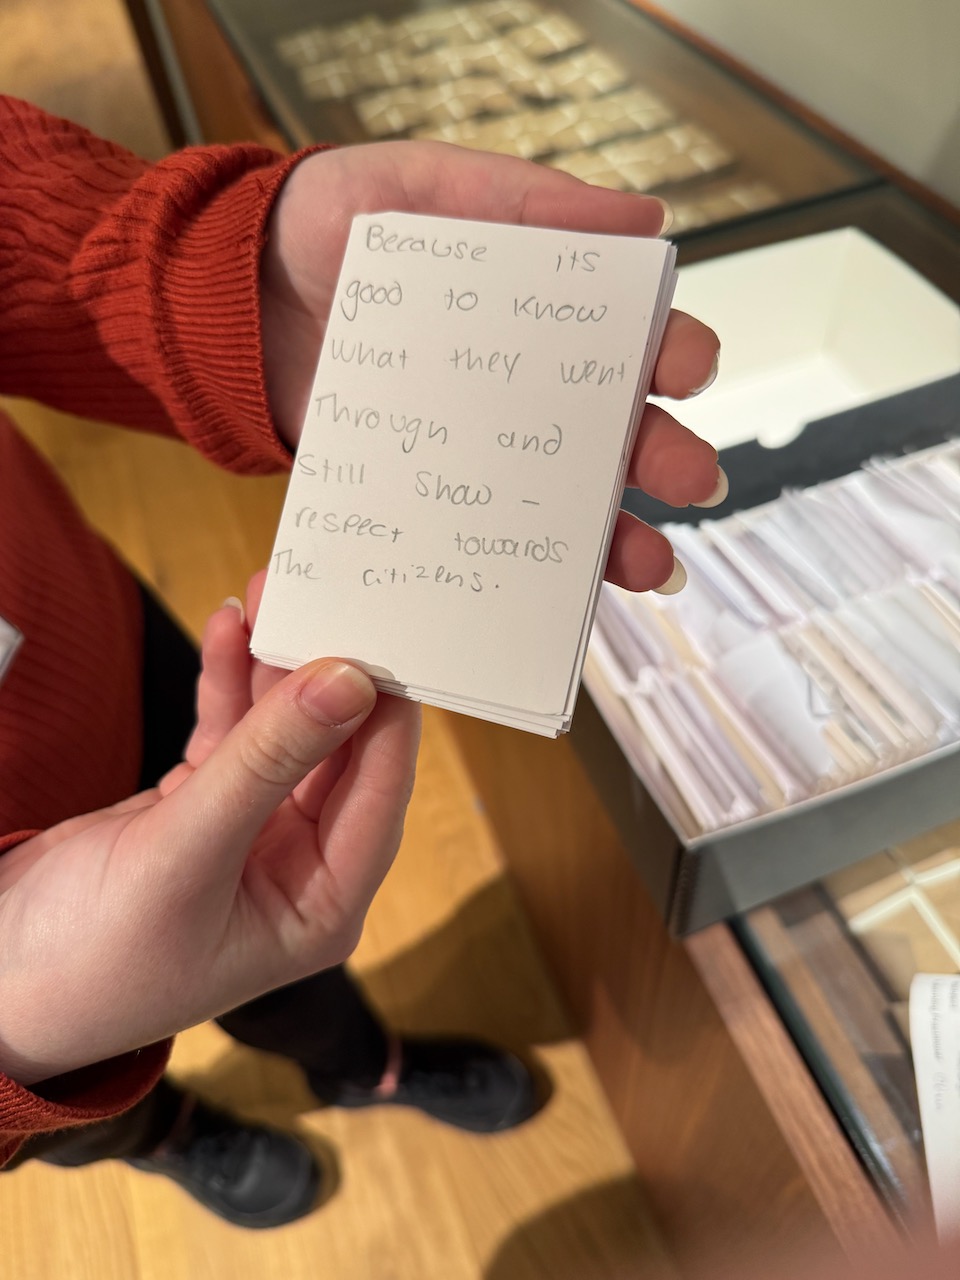 Because its
good to know
what they went
Through and
Still Show -
respect towards
The citizens.